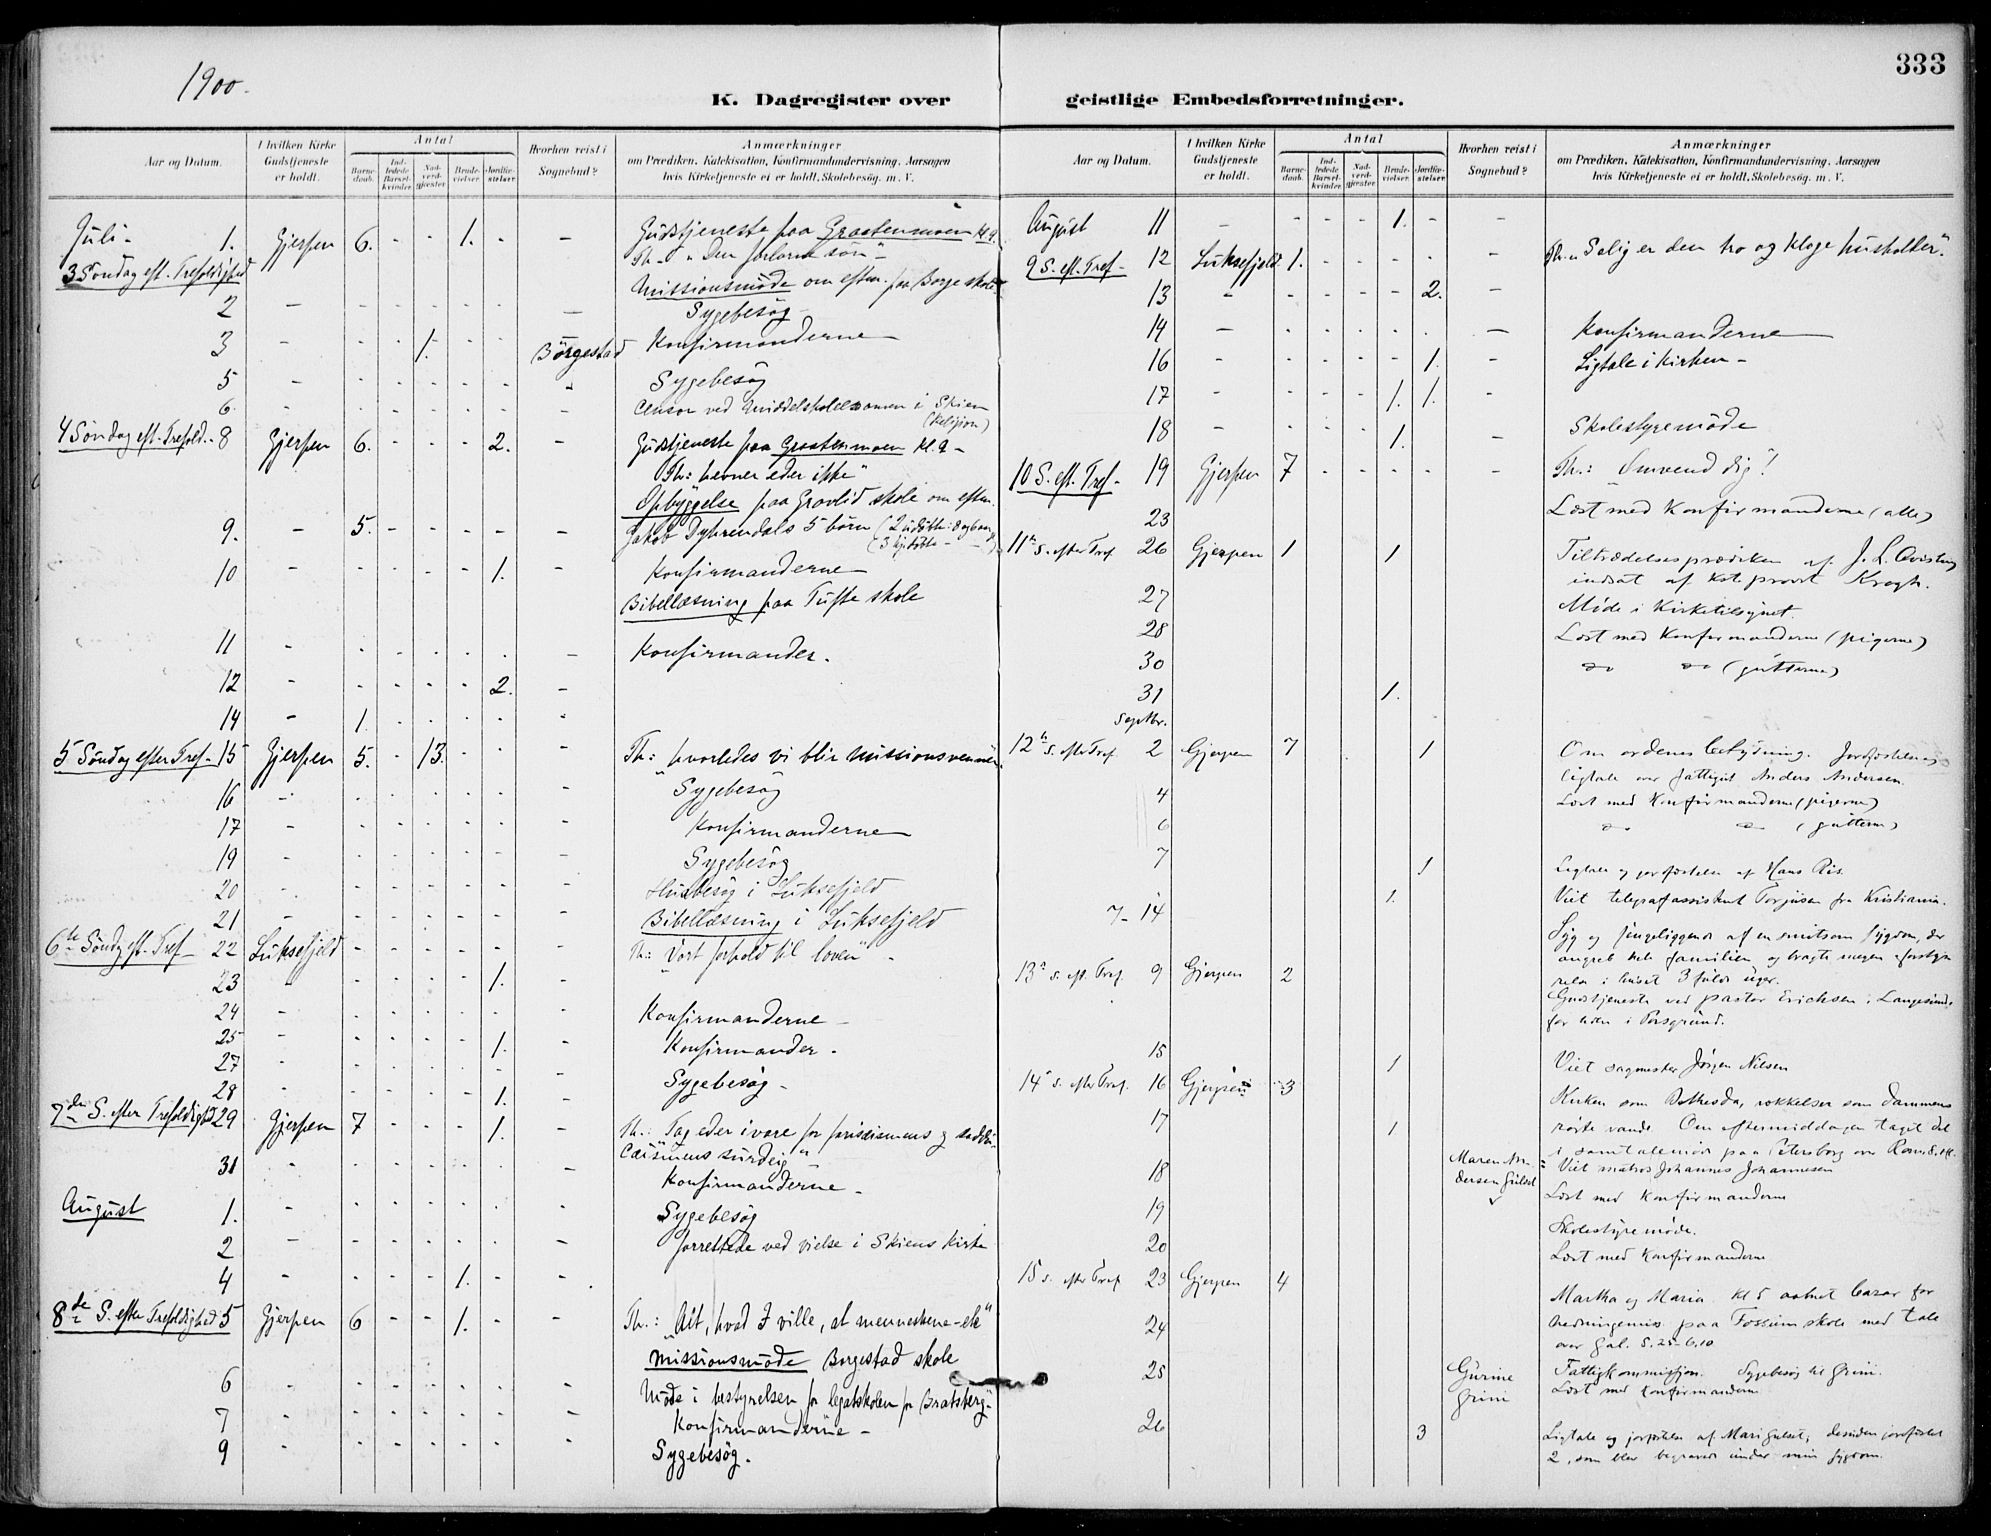 1900.
333
K. Dagregister over geistlige Embedsforretninger.
Aar og Datum.
I hvilken Kirke Gudstjeneste er holdt.
Antal
Barnedaab.
Indledede Barselkvinder.
Nadverdgjester
Brudevielser.
Jordfæstelser.
Hvorhen reist i Sognebud?
Anmærkninger
om Prædiken, Katekisation, Konfirmandundervisning, Aarsagen
hvis Kirketjeneste ei er holdt, Skolebesøg, m. V.
Juli - 1. Gjerpen 6. - - 1. - - Gudstjeneste paa Graatenmoen kl. 9.
3 Söndag eft. Trefoldighed Th - "Den forlorne sön"
Missionsmöde om eftm. paa Borge skole
2 - - - - - - - Sygebesög -
3 - - - 1. - - Börgestad Konfirmanderne
5 - - - - - - " Sygebesög
6. - - - - - - - Censor ved Middelskoleexamen i Skien
(Religion)
4 Söndag eft. Trefold. - 8 Gjerpen 6. - - - 2. - Gudstjeneste paa Graatenmoen kl. 9 -
Th: hevner eder ikke"
Opbyggelse paa Gravlid skole om eftm.
9. - 5. - - - - - Jakob Dyhrendals 5 börn
10 - - - - - 1. - Konfirmanderne
Bibellæsning paa Tufte skole
11 - - - - - - - Konfirmander.
12 - - - - - 2. -
14 - 1. - - - - -
5 Söndag efter Tref - 15 Gjerpen 5. - 13. - - - Th: "hvorledes vi blir missionsvenner.
16 - - - - - - - Sygebesög
17 - - - - - - - Konfirmanderne
19 - - - - - - - Sygebesög
20 - - - - - - - Husbesög i Luksefjeld
21 - - - - - - - Bibellæsning i Luksefjeld
6te Söndg eft. Tref - 22 Luksefjeld - - - - - - Th: "Vort forhold til loven"
23 - - - - - 1. -
24 - - - - - - - Konfirmanderne -
25 - - - - - 1. - Konfirmander.
27 - - - - - - - Sygebesög -
28 - - - - - 1. -
7de S. efter Trefoldighed 29 Gjerpen 7 - - - 1. - Th.: "Tag eder ivare for farisæismens og saddu-
cæismens surdeig"
31 - - - - - - - Konfirmanderne -
August 1. - - - - - - - Sygebesög
2 - - - - - - - forrettede ved vielse i Skiens Kirke
4 - - - - 1. - -
8de S. efter Trefoldighed 5 Gjerpen 6 - - 1. - - Th.: "Alt, hvad I ville, at menneskene - etc"
Missionsmöde Borgestad skole
6 - - - - - - - Möde i bestyrelsen for legatskolen for Bratsberg
7 - - - - - - - Konfirmanderne -
9 - - - - - - - Sygebesög.
Aar og Datum.
I hvilken Kirke Gudstjeneste er holdt.
Antal
Barnedaab.
Indledede Barselkvinder.
Nadverdgjester
Brudevielser.
Jordfæstelser.
Hvorhen reist i Sognebud?
Anmærkninger
om Prædiken, Katekisation, Konfirmandundervisning, Aarsagen
hvis Kirketjeneste ei er holdt, Skolebesøg, m. V.
August 11 - - - - 1. - -
9 S. eft. Tref - 12 Luksefjeld 1. - - - - - Th. "Salig er den tro og kloge husholder".
13 - - - - - 2. -
14 - - - - - - - Konfirmanderne
16 - - - - - 1. - Ligtale i Kirken -
17 - - - - 1. 1. -
18 - - - - 1. - - Skolestyremöde
10 S. eft. Tref - 19 Gjerpen 7 - - - - - Th.: "Omvend dig"!
23 Læst med Konfirmanderne (alle)
11te S. efter Tref 26 Gjerpen 1 1 Tiltrædelsesprædiken af J. L. Qvisling
indsat af kst. provst Krogh.
27 Möde i Kirketilsynet.
28 Læst med Konfirmanderne (pigerne)
30 do do (gutterne)
31 1.
Septbr.
12te S. efter Tref 2 Gjerpen 7 1 Om ordenes betydning. Jordfæstelse og
ligtale over fattiglit Anders Andersen.
4 Læst med Konfirmanderne (pigerne)
6 do do (gutterne)
7 1 Ligtale og jordfæstelse af Hans Ris.
1. Viet telegrafassistent Torjusen fra Kristiania.
7 - 14 Syg og sengeliggende af en smitsom sygdom, der
angreb hele familien og bragte megen forstyr-
relse i huset 3 fulde uger.
13de S. eft. Tref. 9 Gjerpen 2 Gudstjeneste ved pastor Erichsen i Langesund,
for hden i Porsgrund.
15 1 Viet sagmester Jörgen Nilsen
14de S. efter Tref. 16 Gjerpen 3 Kirken som Bethesda, vækkelser som dammens
rörte vande. Om eftermiddagen taget del
i samtalemöde paa Petersborg over Rom. 8.
17 1 Viet matros Johannes Johannesen
18 Maren Andersen Gulset Læst med Konfirmanderne
19 Skolestyremöde.
20 Læst med Konfirmanderne
15 S. efter Tref 23 Gjerpen 4 Martha og Maria. Kl 5 aabnet bazar for
hedningemis. paa Fossum skole med tale
over Gal. 5.25-6.10
24 Fattigkommission. Sygebesög til Grini.
25 Gurine Grini Læst med Konfirmanderne
26 3 Ligtale og jordfæstelse af Mari Gulset; desuden jordfæstet
2, som blev begravede under min sygdom.